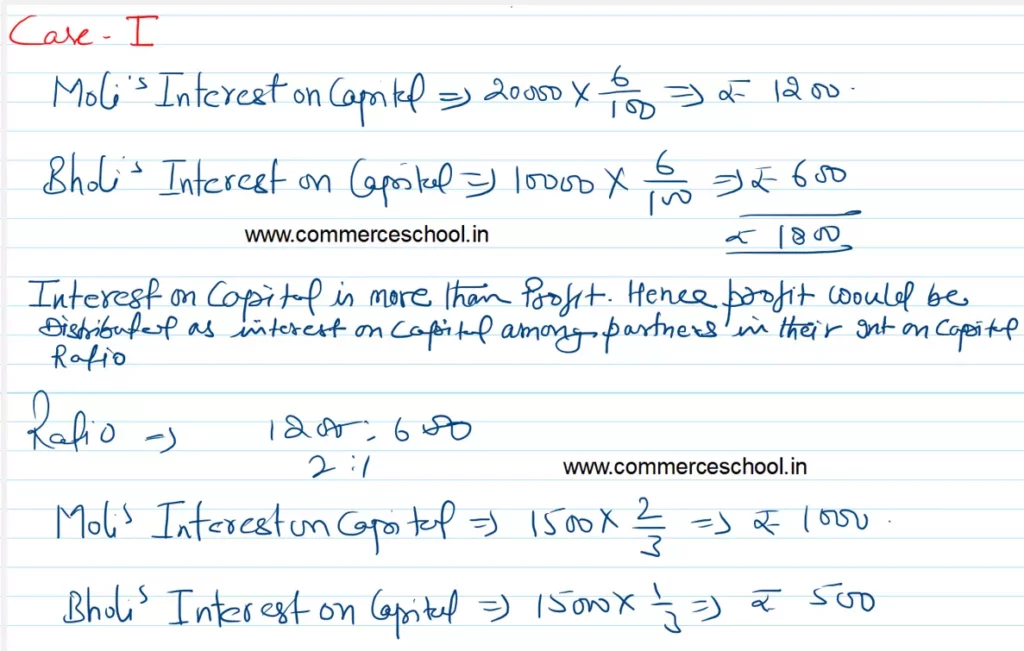 Case - I
Moli's Interest on Capital ⇒ 20000 × 6/100 ⇒ ₹ 1200.
Bholi's Interest on Capital ⇒ 10000 × 6/100 ⇒ ₹ 600
www.commerceschool.in ₹ 1800
Interest on Capital is more than Profit. Hence profit would be
Distributed as interest on capital among partners in their Int on Capital
Ratio
Ratio ⇒ 1200 : 600
2 : 1
www.commerceschool.in
Moli's Interest on Capital ⇒ 1500 × 2/3 ⇒ ₹ 1000.
Bholi's Interest on Capital ⇒ 1500 × 1/3 ⇒ ₹ 500